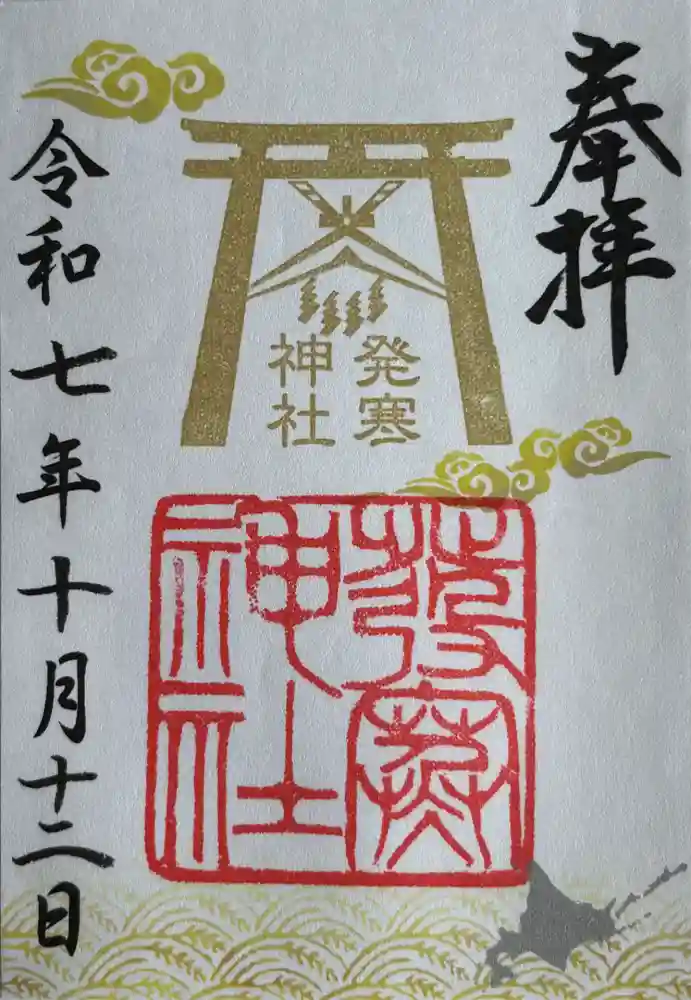 奉拝
発寒
神社
發寒
神社
令和七年十月十二日